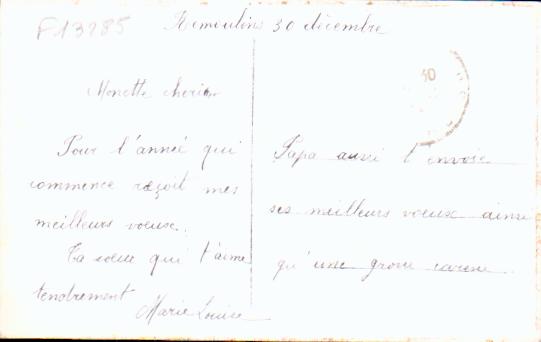 F13285
Remoulins 30 décembre
30
Monette cherie
Pour l'année qui
commence reçoit mes
meilleurs voeux.
Ta soeur qui t'aime
tendrement
Marie Louise
Papa aussi t'envoie
ses meilleurs voeux ainsi
qu'une grosse caresse.